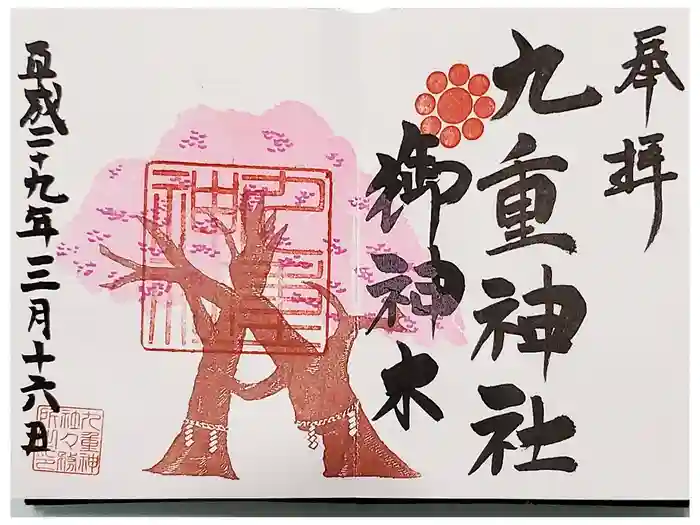 奉拝
九重神社
御神木
平成二十九年三月十六日
九重神
社々務
所之印